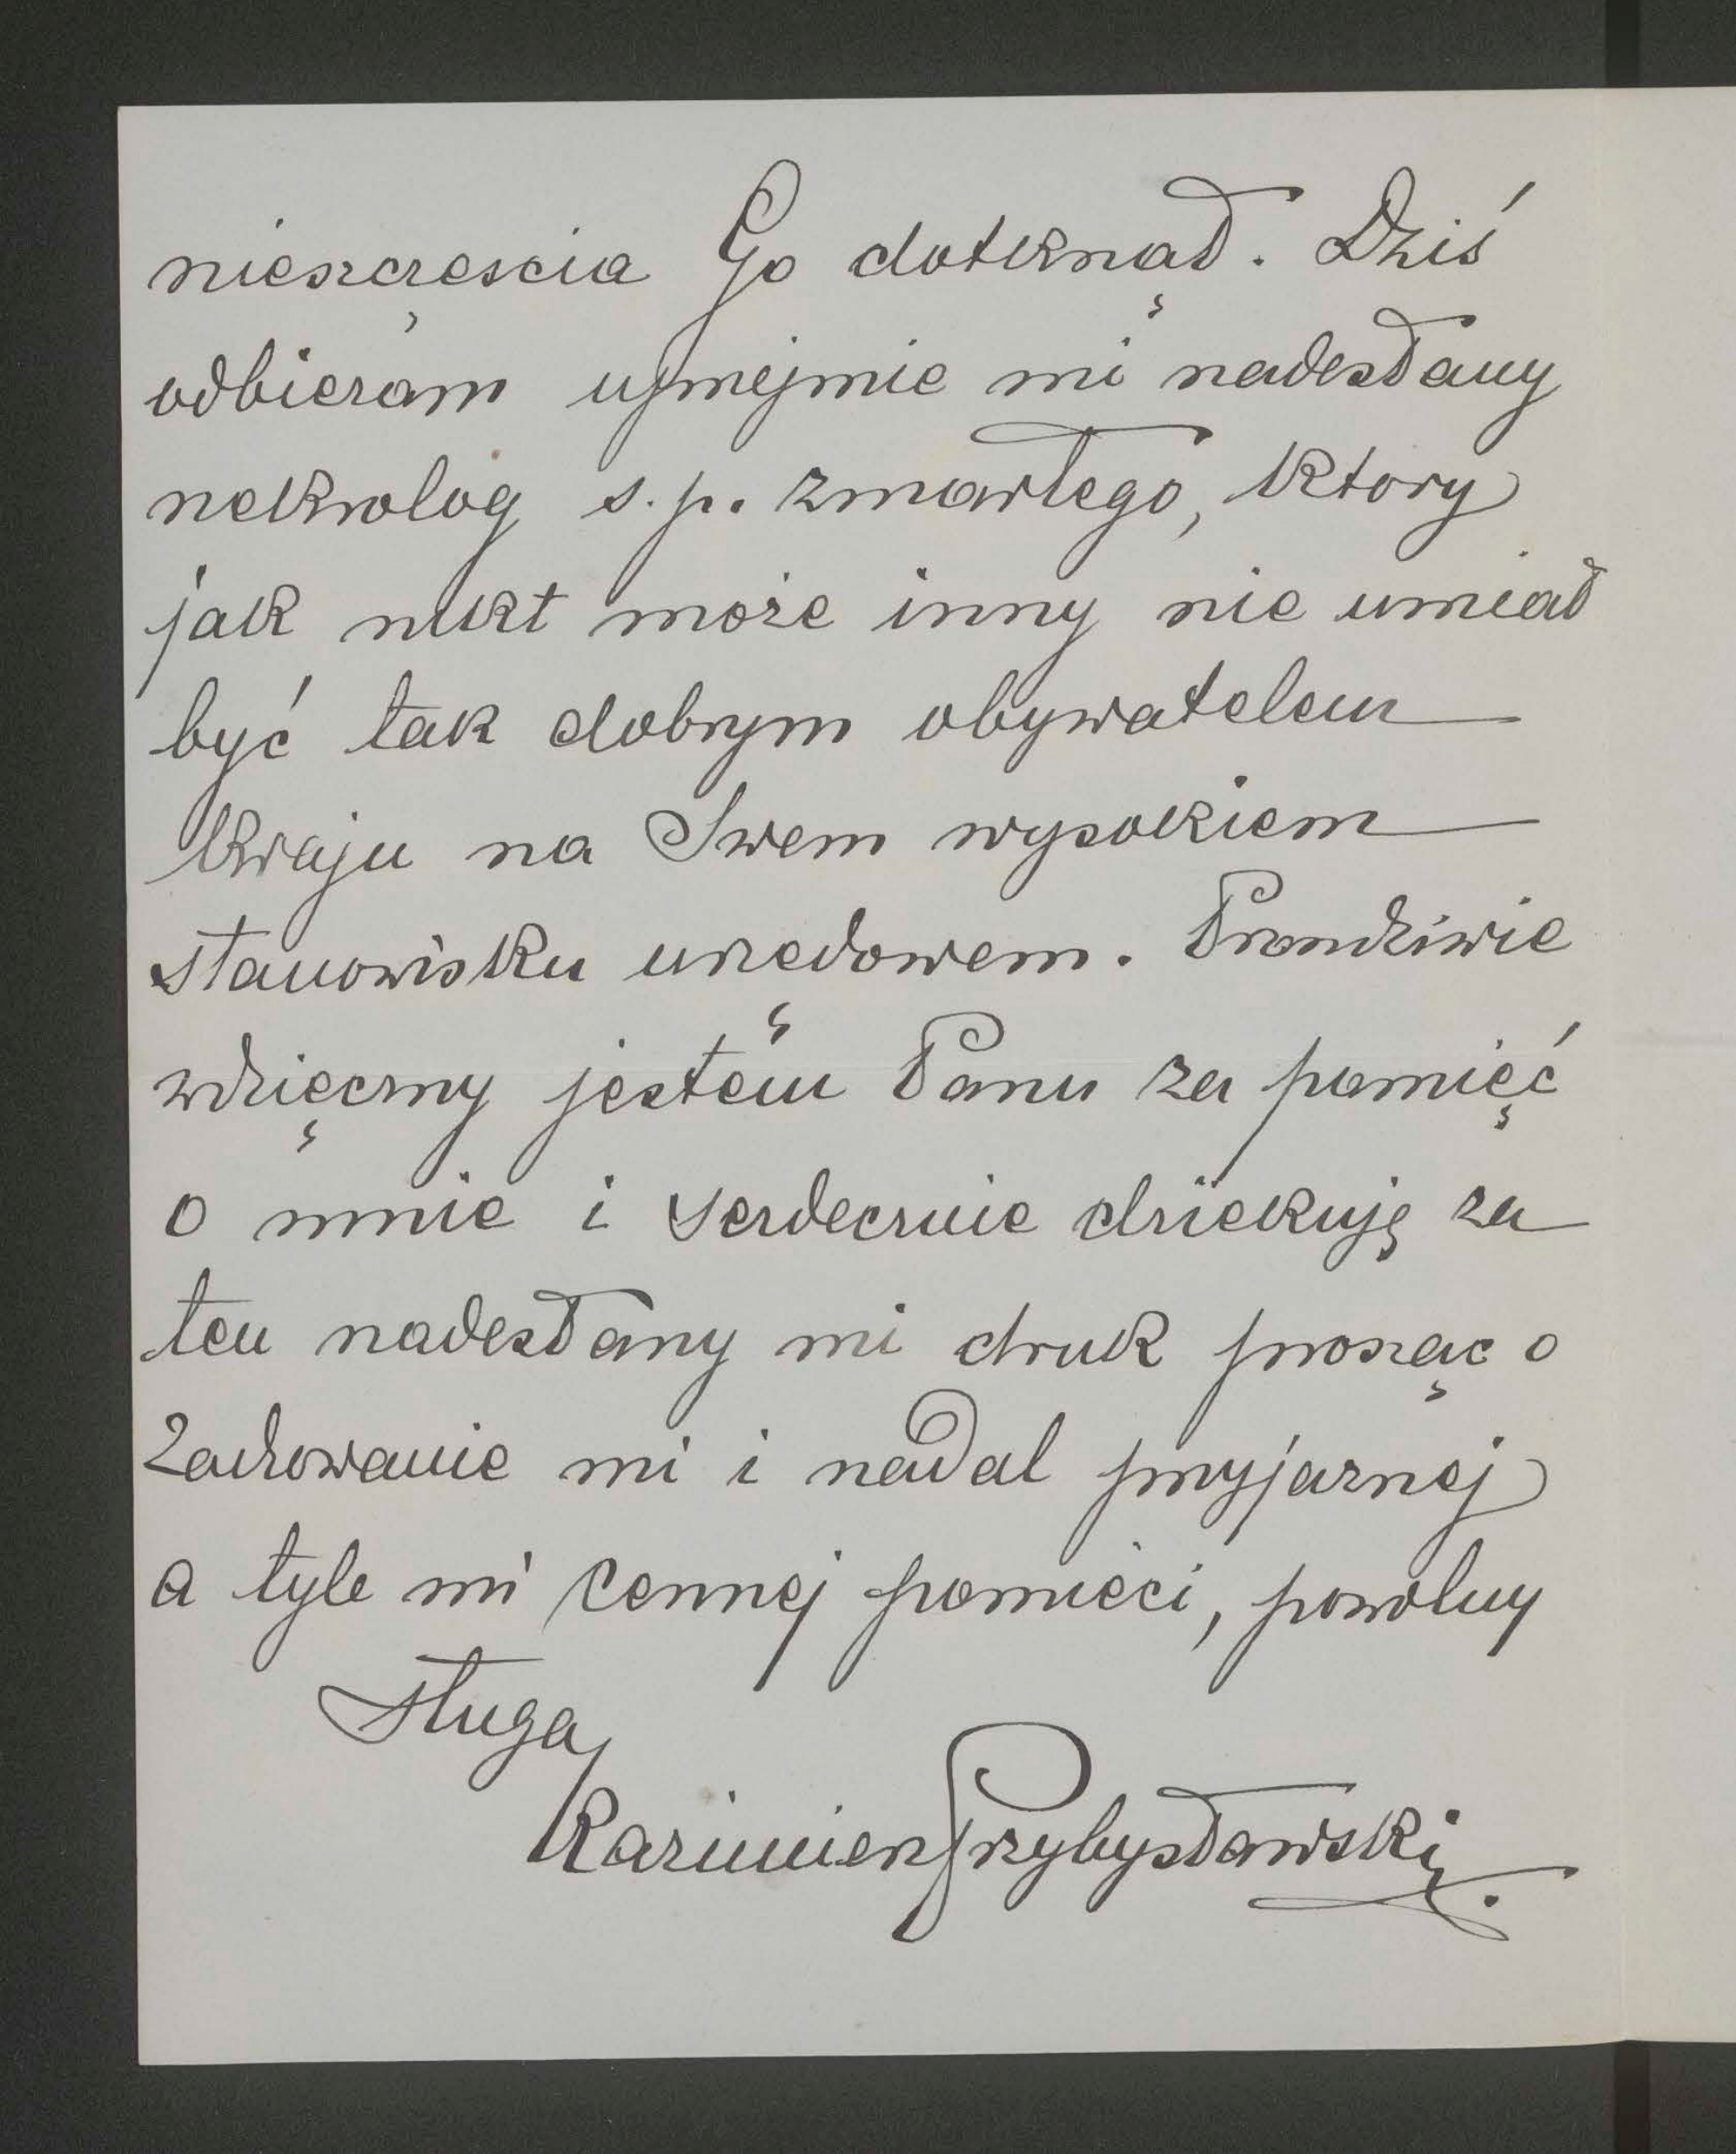 nieszczęscia Go dotknął. Dziś
odbieram uprzejmie mi nadesłany
nekrolog s.p. zmarłego, ktory
jak nikt może inny nie umiał
być tak dobrym obywatelem
kraju na Swem wysokiem
stanowisku urzędowem. Prawdziwie
wdzięczny jestem Panu za pamięć
o mnie i serdecznie dziekuję za
ten nadesłany mi druk prosząc o
zachowanie mi i nadal przyjaznej
a tyle mi cennej pamieci, powolny
sługa
Kazimierz Przybysławski.